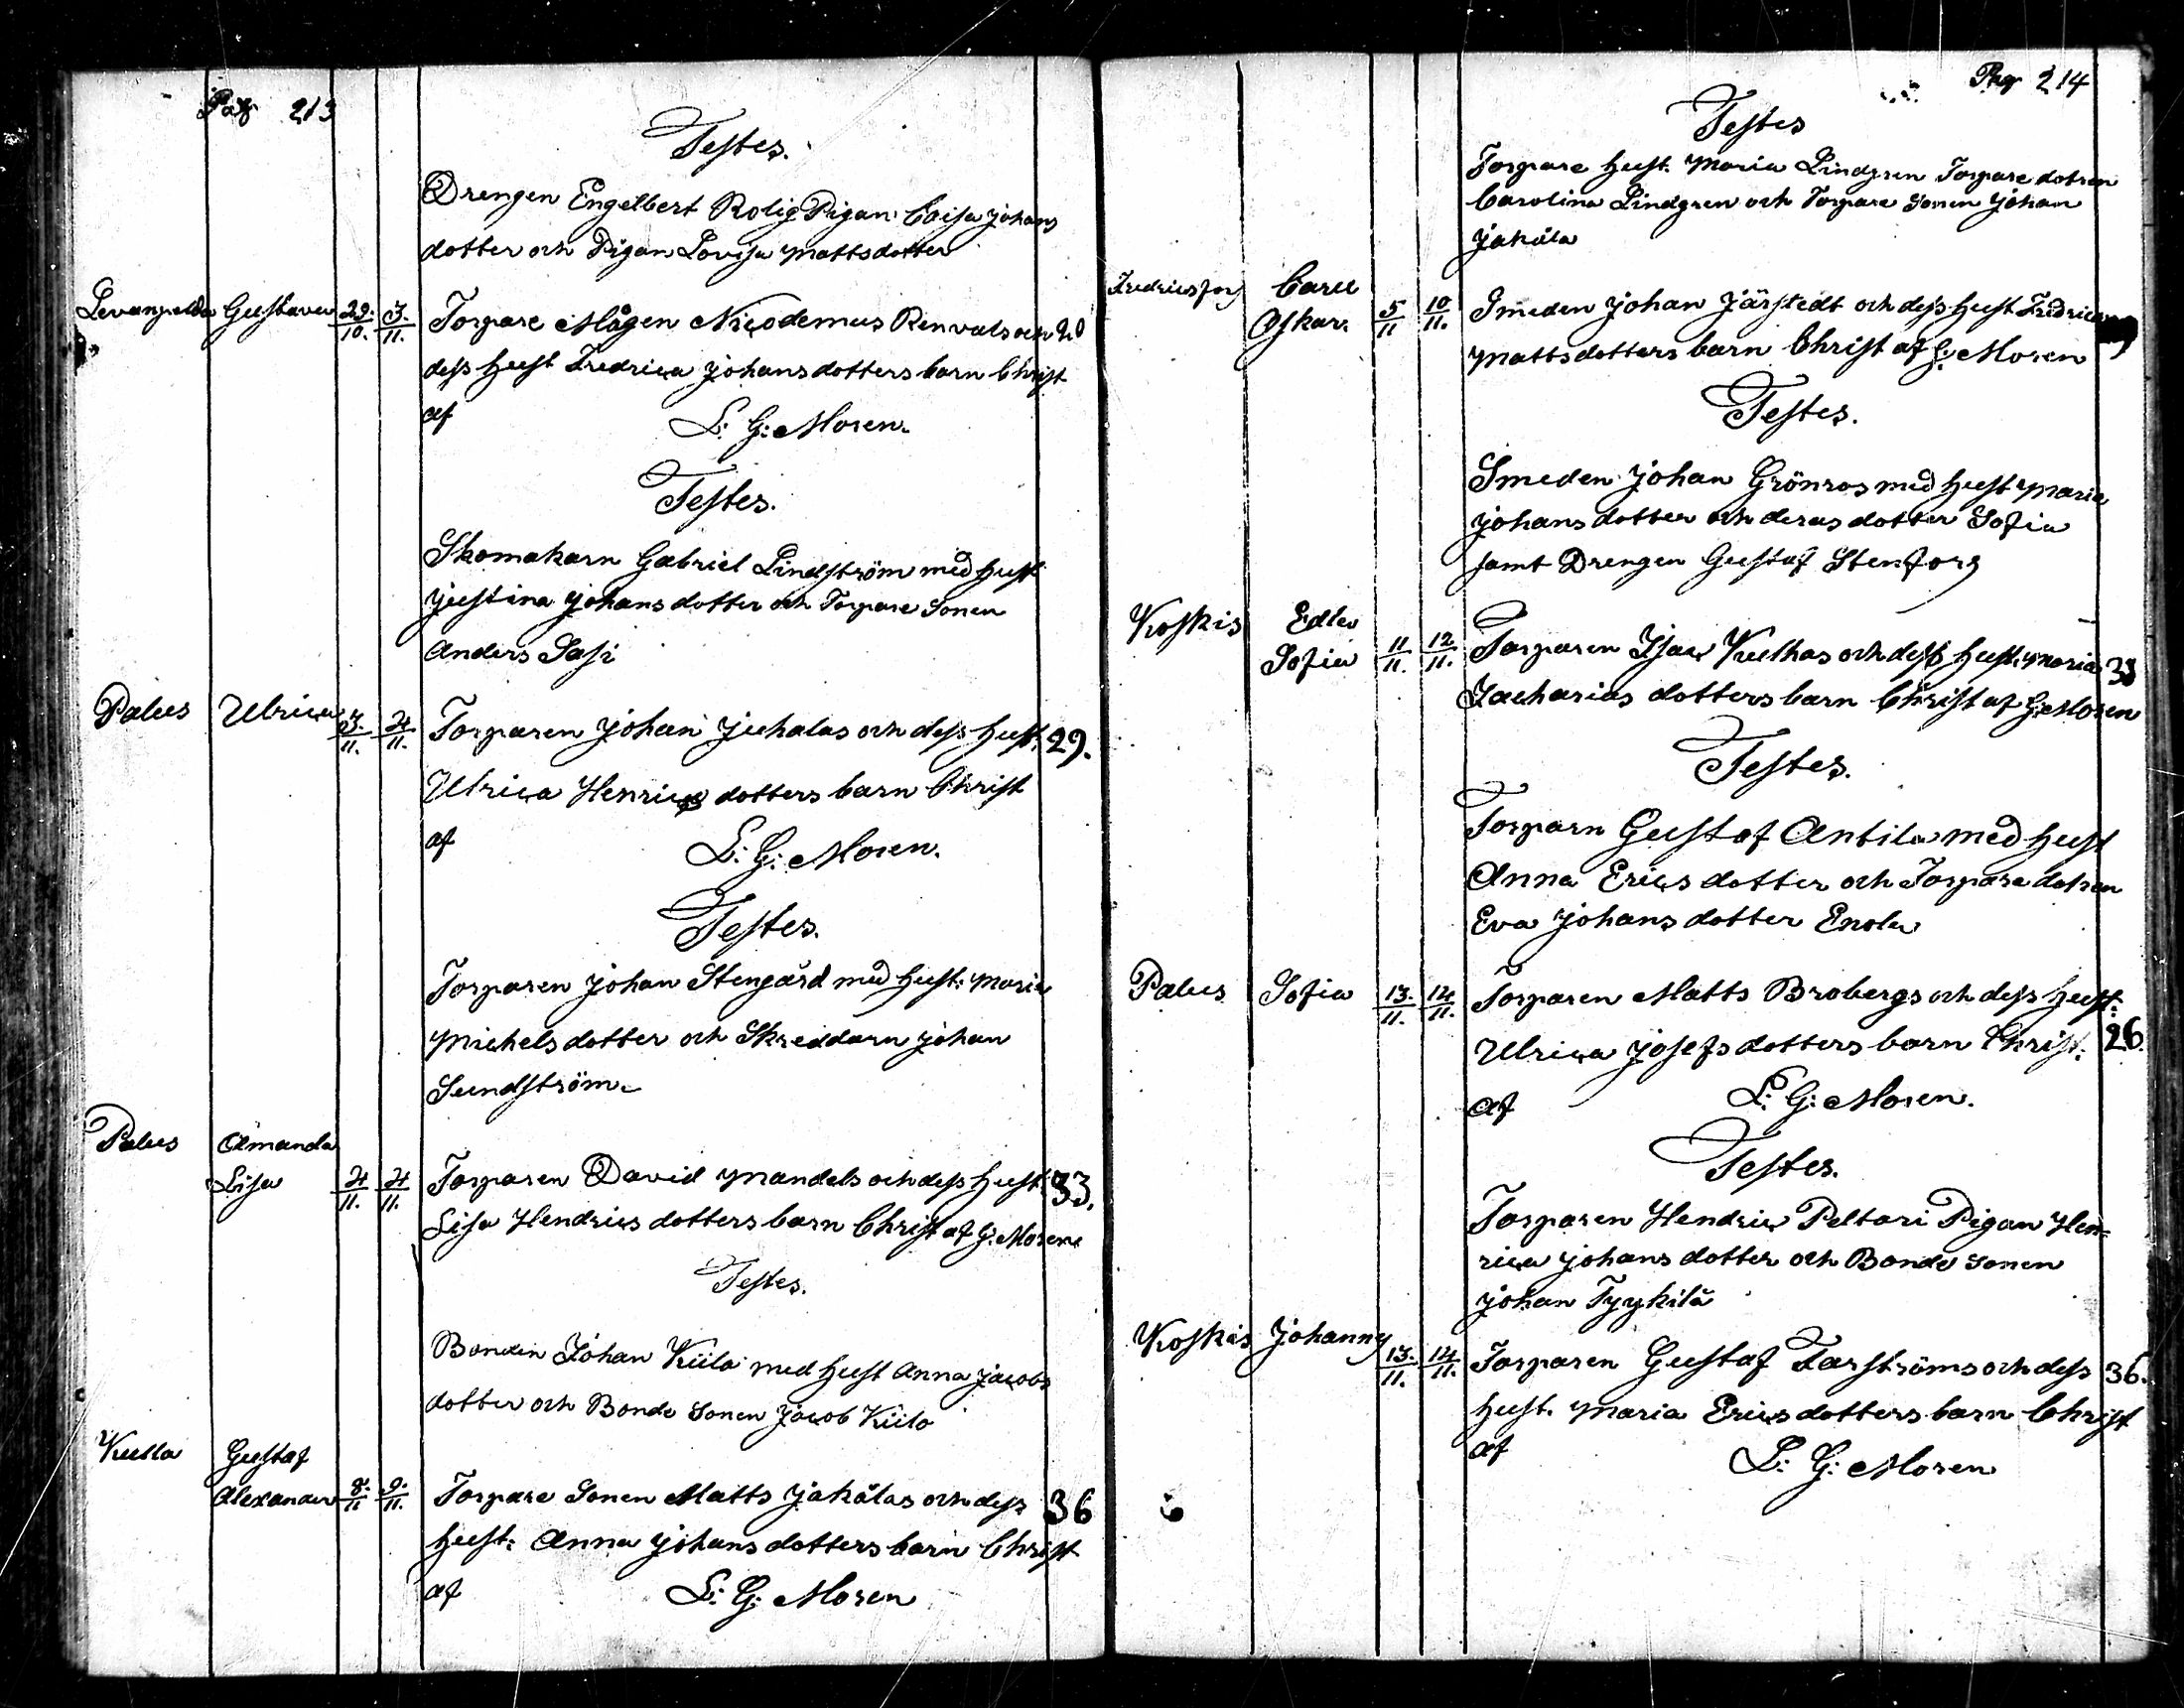 Pag 213
Testes.
Drengen Engelbert Rolig Pigan Caisa Johans
dotter och Pigan Lovisa Mattsdotter
Levanpelda Gustava 29./10. 3./11. Torpare Mågen Nicodemus Renvals och
dess hust Fredrica Johansdotters barn Christ
af L: G: Moren.
Testes.
Skomakarn Gabriel Lindström med hust
Justina Johansdotter och Torpare Sonen
Anders Sasi
Palus Ulrica 3./11. 4/11. Torparen Johan Juhalas och dess hust: 29.
Ulrica Henrics dotters barn Christ
af L: G: Moren.
Testes.
Torparen Johan Stengård med hust: Maria
Michels dotter och Skreddarn Johan
Sundström
Palus Amanda
Lisa 4/11. 4/11. Torparen David Mandels och dess hust: 33.
Lisa Hendrics dotters barn Christ af G: Moren
Testes.
Bonden Johan Kiilo med hust Anna Jacobs
dotter och Bonde Sonen Jacob Kiilo
Kulla Gustaf
Alexander 8./11 9./11. Torpare Sonen Matts Jakålas och dess 36
hust: Anna Johans dotters barn Christ
af L: G: Moren
Pag 214
Testes
Torpare hust. Maria Lindgren Torpare dotren
Carolina Lindgren och Torpare Sonen Johan
Jakåla
Fredricsfors Carl
Oskar 5/11 10/11. Smeden Johan Järstedt och dess hust Fredrica
Mattsdotters barn Christ af G: Moren
Testes.
Smeden Johan Grönros med hust Maria
Johans dotter och deras dotter Sofia
samt Drengen Gustaf Stenfors
Koskis Edla
Sofia 11/11. 12/11. Torparen Isac Kulhas och dess hust. Maria
Zacharias dotters barn Christ af G: Moren
Testes.
Torparn Gustaf Antila med hust
Anna Erics dotter och Torpare dotren
Eva Johans dotter Enola
Palus Sofia 13./11. 14/11. Torparen Matts Brobergs och dess hust:
Ulrica Josefs dotters barn Christ: 26.
af L: G: Moren.
Testes.
Torparen Hendric Peltari Pigan Hen-
rica Johans dotter och Bonde Sonen
Johan Tyykilä
Koskis Johanny 13./11. 14/11. Torparen Gustaf Farströms och dess 36.
hust. Maria Erics dotters barn Christ
af L: G: Moren